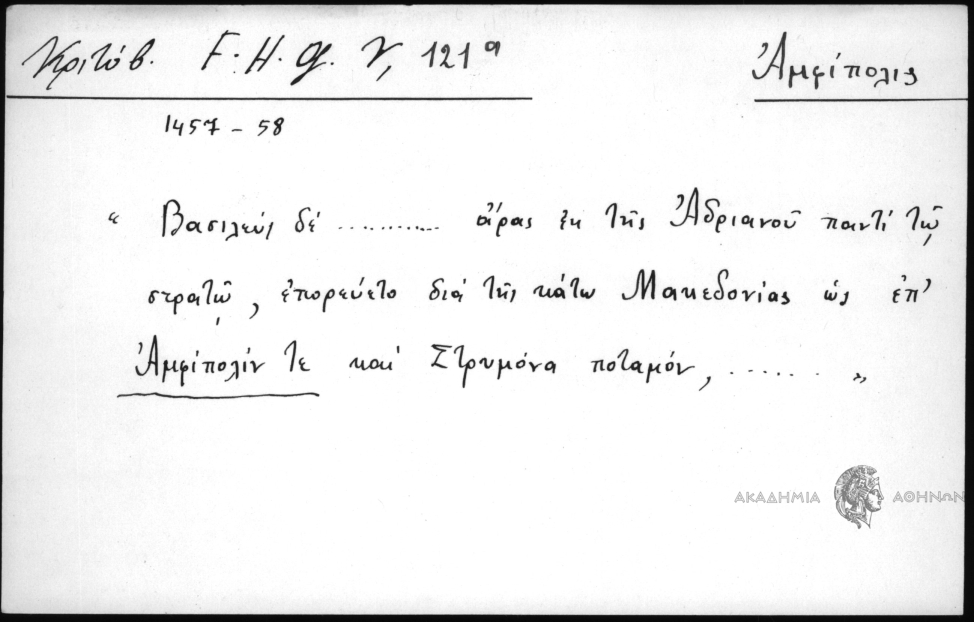 Κριτόβ. F. H. G. V, 121ᵃ
Ἀμφίπολις
1457 - 58
“ Βασιλεύς δέ ........... ἄρας ἐκ τῆς Ἀδριανοῦ παντί τῷ
στρατῷ, ἐπορεύετο διά τῆς κάτω Μακεδονίας ὡς ἐπ’
Ἀμφίπολίν τε καί Στρυμόνα ποταμόν, ....... „
ΑΚΑΔΗΜΙΑ ΑΘΗΝΩΝ